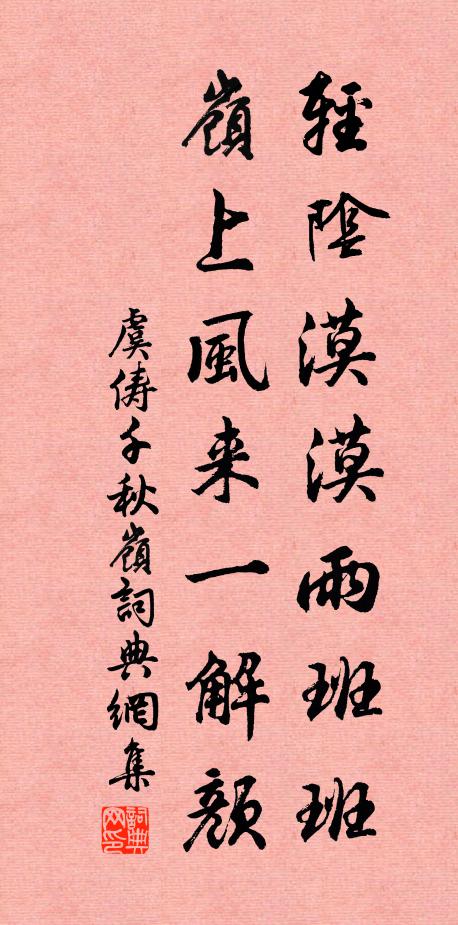 輕陰漠漠雨班班
嶺上風来一解顏
虞儔千秋嶺詞典網集
詞典网印